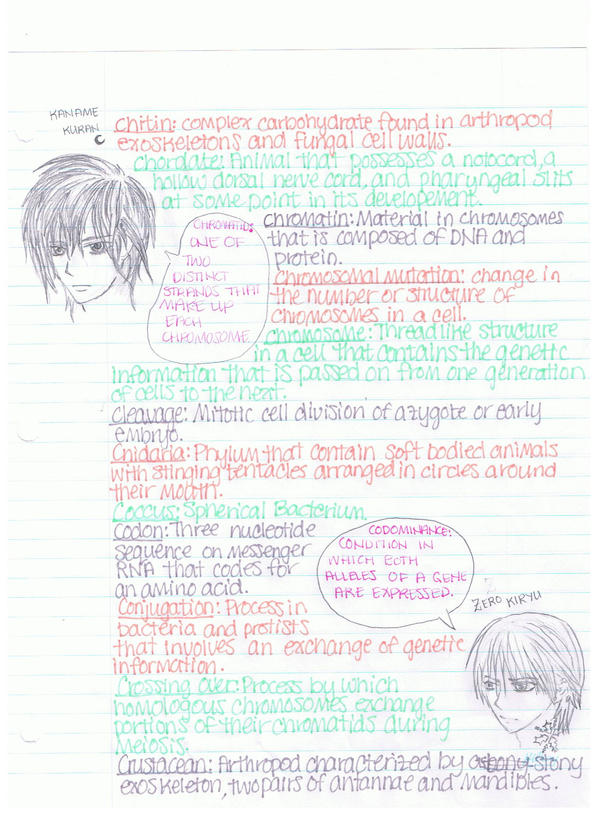 KANAME
KURAN
Chitin: complex carbohydrate found in arthropod
exoskeletons and fungal cell walls.
Chordate: Animal that possesses a notocord, a
hollow dorsal nerve cord, and pharyngeal slits
at some point in its developement.
CHROMATID:
ONE OF
TWO
DISTINCT
STRANDS THAT
MAKE UP
EACH
CHROMOSOME.
Chromatin: Material in chromosomes
that is composed of DNA and
protein.
Chromosomal mutation: change in
the number or structure of
chromosomes in a cell.
Chromosome: Threadlike structure
in a cell that contains the genetic
information that is passed on from one generation
of cells to the next.
Cleavage: Mitotic cell division of a zygote or early
embryo.
Cnidaria: Phylum that contain soft bodied animals
with stinging tentacles arranged in circles around
their mouth.
Coccus: Spherical Bacterium
Codon: Three nucleotide
sequence on messenger
RNA that codes for
an amino acid.
CODOMINANCE:
CONDITION IN
WHICH BOTH
ALLELES OF A GENE
ARE EXPRESSED.
ZERO KIRYU
Conjugation: Process in
bacteria and protists
that involves an exchange of genetic
information.
Crossing over: Process by which
homologous chromosomes exchange
portions of their chromatids during
meiosis.
Crustacean: Arthropod characterized by a stony
exoskeleton, two pairs of antannae and mandibles.